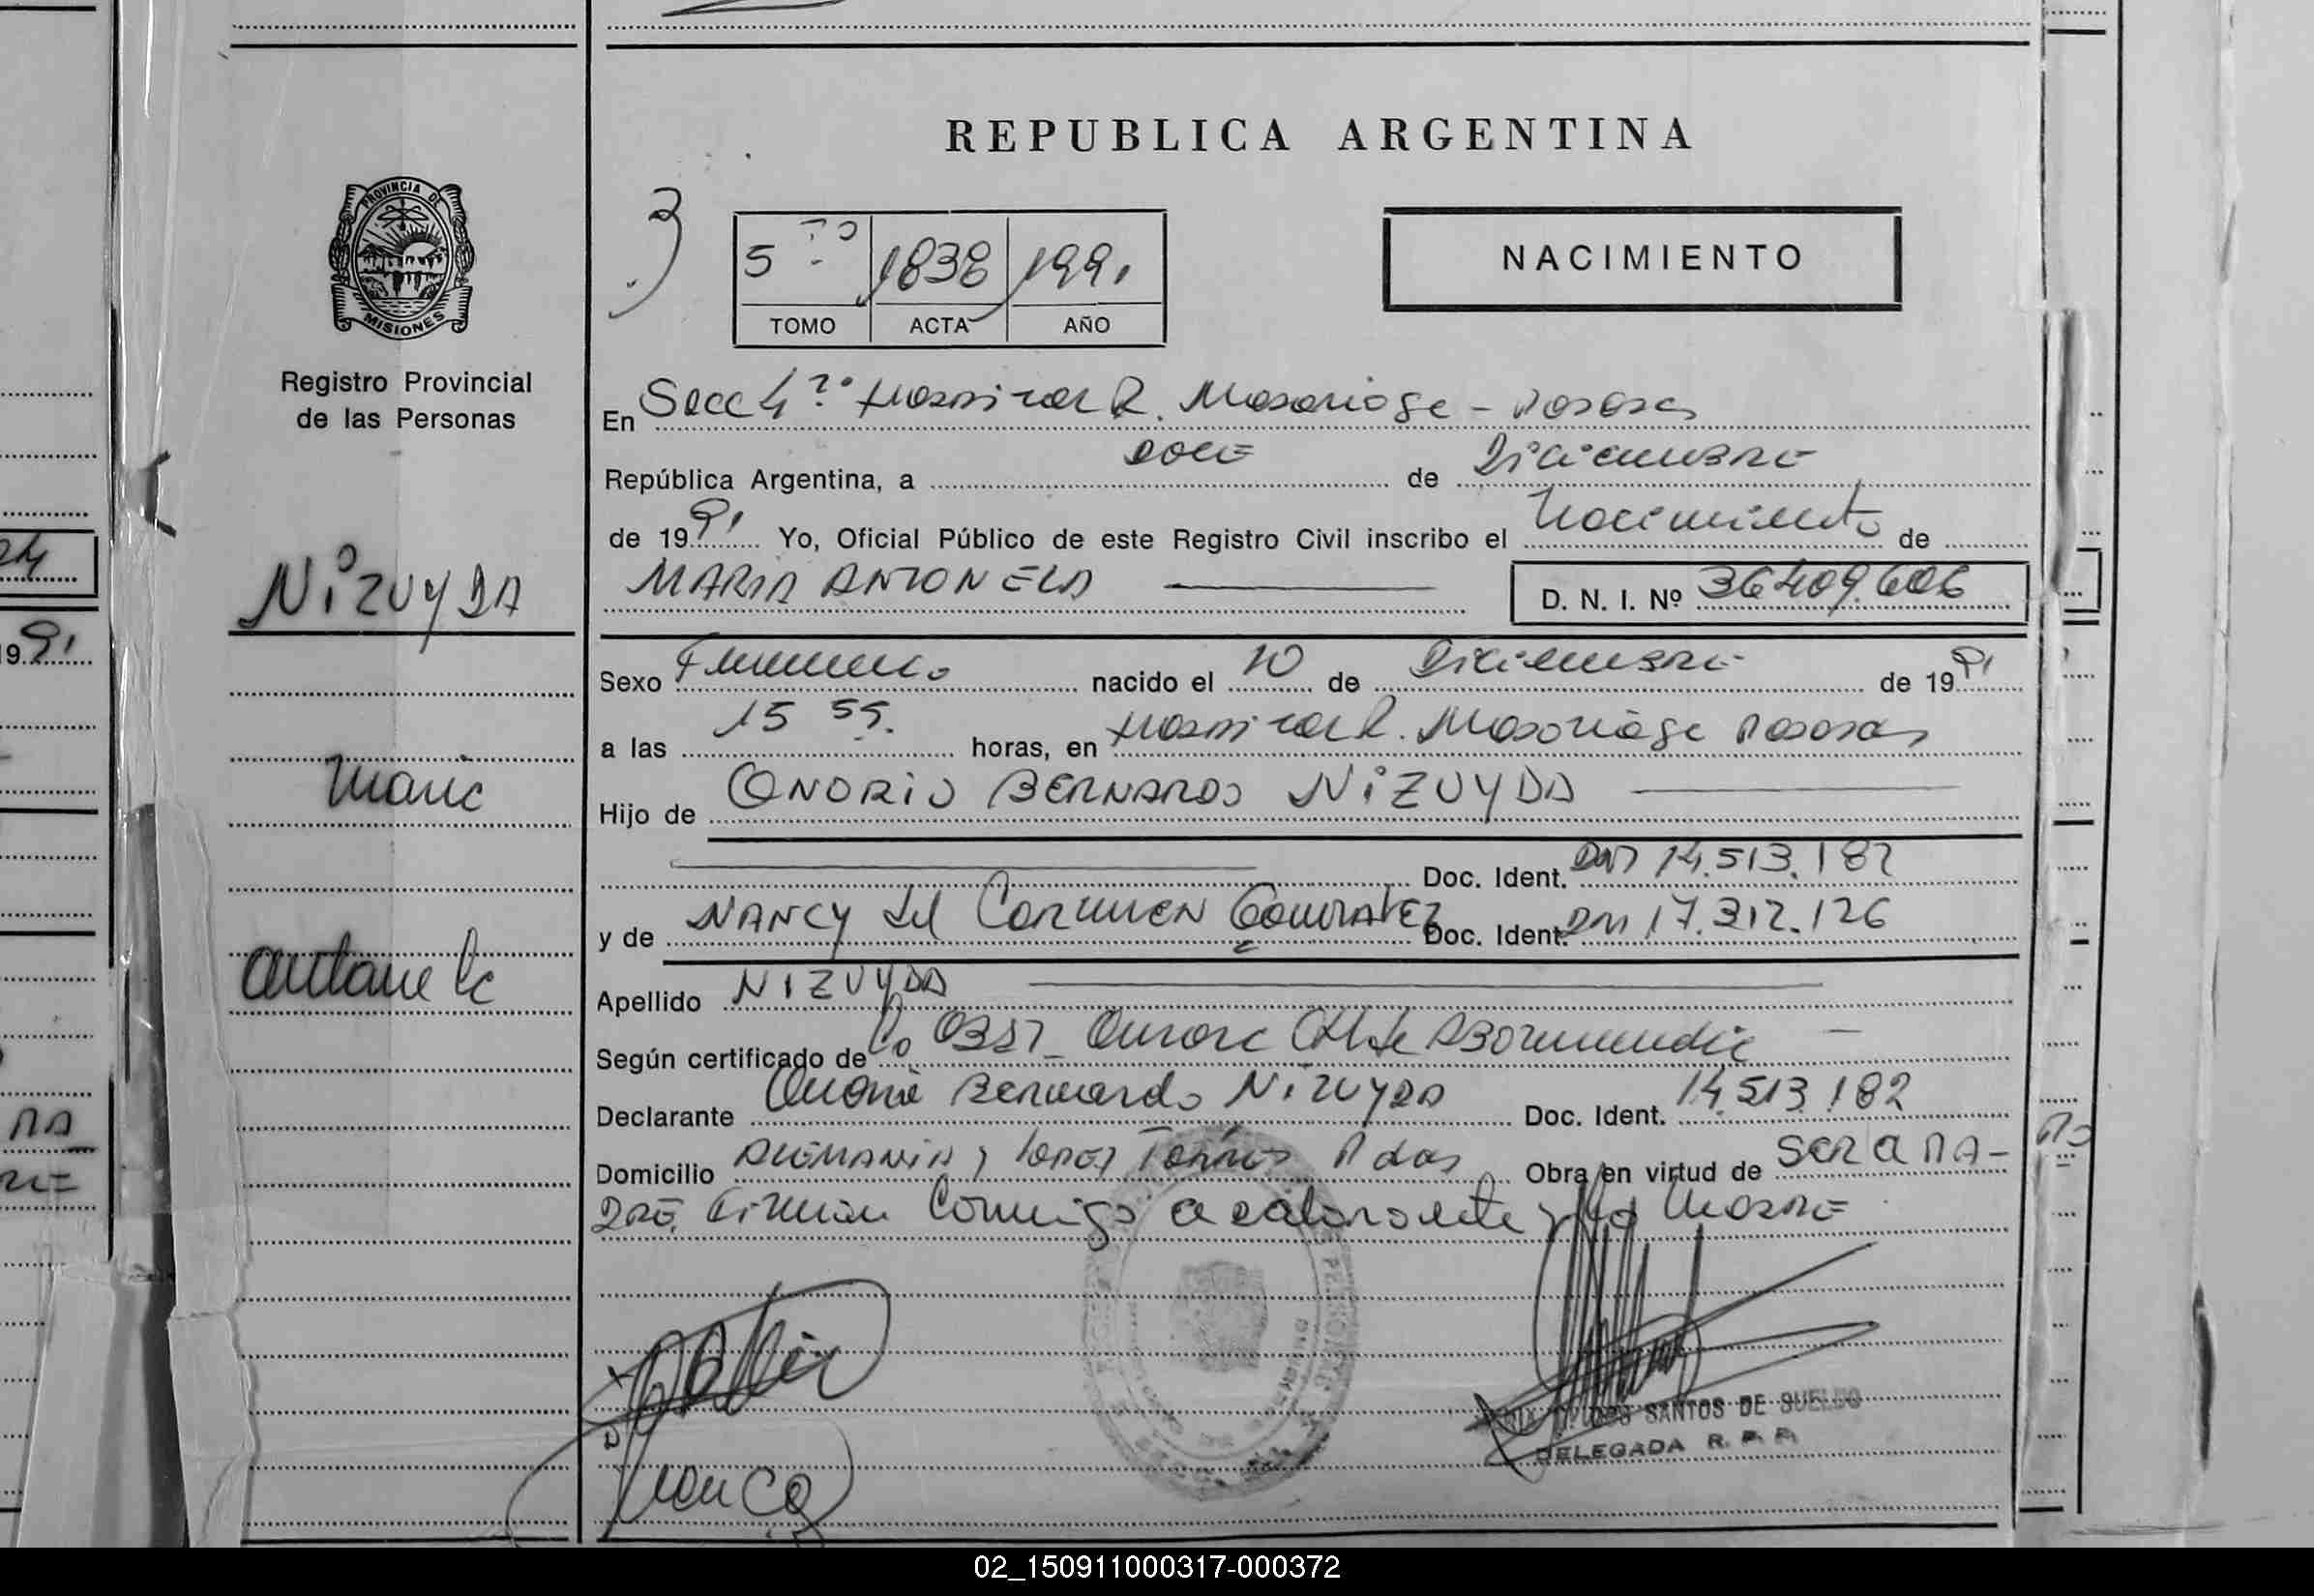 REPUBLICA ARGENTINA
PROVINCIA DE
MISIONES
Registro Provincial
de las Personas
3
5 TO 1838 1991
TOMO ACTA AÑO
NACIMIENTO
En Secc 4 Hospital R. Madariaga - Posadas
República Argentina, a doce de Diciembre
de 19 91 Yo, Oficial Público de este Registro Civil inscribo el Nacimiento de
MARIA ANTONELA D. N. I. Nº 36.409.606
NiZUYDA
Maria
Antonela
Sexo Femenino nacido el 10 de Diciembre de 19 91
a las 15 55. horas, en Hospital R. Madariaga Posadas
Hijo de ONORIO BERNARDO NiZUYDA
Doc. Ident. DNI 14.513.182
y de NANCY del Carmen Gonzalez Doc. Ident. DNI 17.312.126
Apellido NIZUYDA
Según certificado de La Obst. Aurora
Declarante Onorio Bernardo NiZUYDA Doc. Ident. 14.513.182
Domicilio ALEMANIA y Lopez Torres Pdas Obra en virtud de SER a PA-
DRE. Firman Conmigo declarante y la Madre
SANTOS DE SUELDO
DELEGADA R. P. P.
02_150911000317-000372